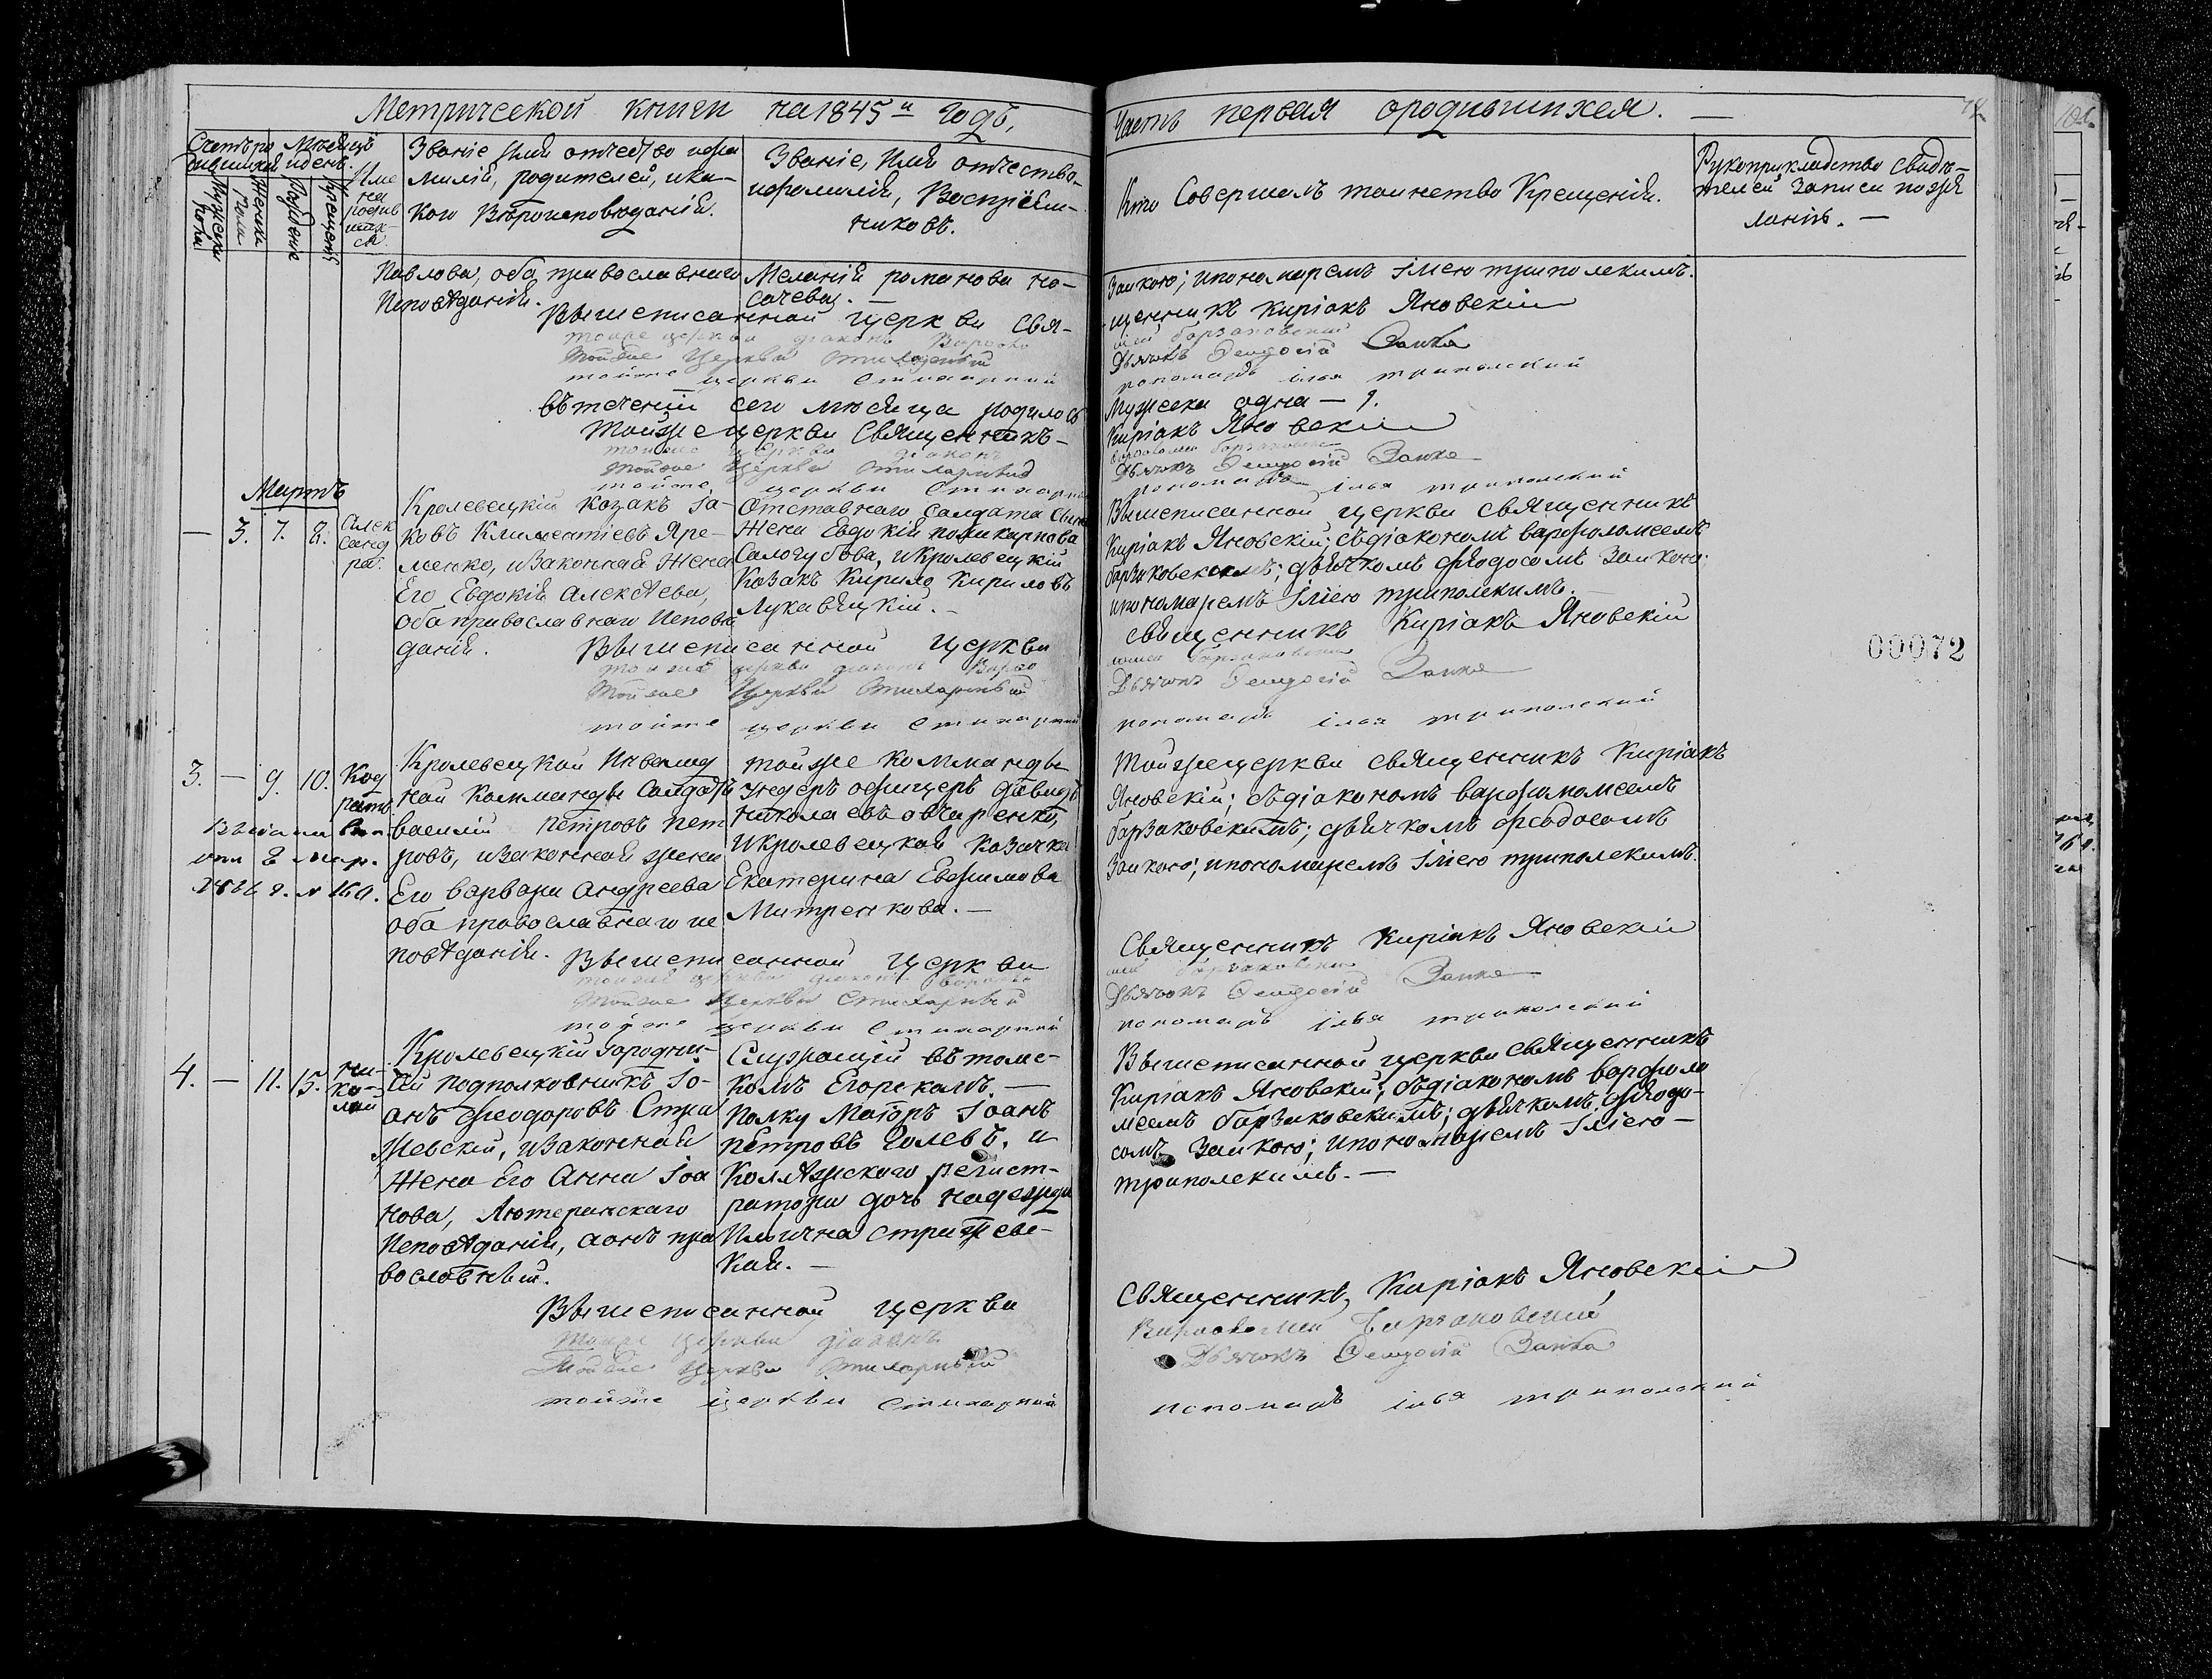 Метрической книги на 1845й годъ,
Часть первая ородившихся. —
Счетъ ро
дившихся
Мѣсяцъ
и день
Мужеска
пола
Женска
пола
Рожденіе
Крещеніе
Име
на
родив
ших-
ся.
Званіе Имя отчество и фа
милія, родителей, ика-
кого Вѣроисповѣданія.
Званіе, Имя отчество,
ифамилія, Воспріем-
никовъ.
Кто Совершалъ таинство Крещенія.
Рукоприкладство свидѣ-
телей Записи по же
ланію. —
Павлова, оба православнаго
Исповѣданія.
Меланія романова но-
сачева. —
Вышеписанной церкви свя-
тойже церкви діаконъ Варфоло
Тойже Церкви Стихарный
тойже церкви Стихарный
въ теченіи сего мѣсяца родилось
Тойже церкви Священникъ —
тойже церкви діаконъ
Тойже Церкви Стихарный
тойже церкви Стихарный
Заикою; ипономаремъ Іліею триполскимъ.
щенникъ Киріакъ Яновскій
мей барзаковскій
Дьячокъ Феодосій Заика
пономарь ілья трипольскій
Мужеска одна — 1.
Киріакъ Яновскій
варфоломей барзаковскій
Дьячокъ Феодосій Заика
пономарь ілья трипольскій
Мартъ
— 3. 7. 8. Алек
санд
ра.
Кролевецкій козакъ Іа-
ковъ Климентіевъ Яре-
менко, изаконная Жена
Его Евдокія Алексѣева,
оба православнаго Исповѣ
данія.
Отставнаго Салдата
Жена Евдокія поликарпова
Салогубова, икролевецкій
Казакъ Кирило Кириловъ
Лукавецкій. —
Вышеписанной Церкви
тойже церкви діаконъ Варфо
Тойже Церкви Стихарный
тойже церкви Стихарный
Вышеписанной церкви священникъ
Киріакъ Яновскій; съдіакономъ варфоломеемъ
барзаковскимъ; дьячкомъ феодосомъ Заикою
ипономаремъ Іліею триполскимъ. —
священникъ Киріакъ Яновскій
ломей барзаковскій
Дьячокъ Феодосій Заика
пономарь ілья трипольскій
00072
3. — 9. 10. Код
ратъ
Выдана
отъ 8 мар.
№ 160.
Кролевецкой Инвалид
ной Комманды Салдатъ
василій петровъ пет
ровъ, изаконная жена
Его варвара андреева
оба православнаго ис
повѣданія.
тойже комманды
ундеръ офицеръ давидъ
николаевъ овчаренко,
икролевецкая козачка
Екатерина Евфимова
Митренкова. —
Вышеписанной церкви
тойже церкви діаконъ варфоло
Тойже Церкви Стихарный
тойже церкви Стихарный
Тойжецеркви священникъ Киріакъ
Яновскій; съдіакономъ варфоломеемъ
барзаковскимъ; дьячкомъ феодосомъ
Заикою; ипономаремъ Іліею триполскимъ.
Священникъ Киріакъ Яновскій
мей барзаковскій
Дьячокъ Феодосій Заика
пономарь ілья трипольскій
4. — 11. 15. ни-
ко-
лай
Кролевецкій Городни-
чій подполковникъ Іо-
анъ феодоровъ Стри
жевскій, изаконная
жена Его Анна Іоа
нова, Лютеранскаго
Исповѣданія, аонъ пра
вославный.
Служащій въ томс-
комъ Егорскомъ. —
Полку Маіоръ Іоанъ
петровъ Голевъ. и
Коллѣжскаго регист-
ратора дочь надежда
Ильична стрижевс-
кая. —
Вышеписанной церкви
тойже церкви діаконъ
Тойже Церкви Стихарный
тойже церкви Стихарный
Вышеписанной церкви священникъ
Киріакъ Яновскій; съдіакономъ варфоло
меемъ барзаковскимъ; дьячкомъ феодо-
сомъ Заикою; ипономаремъ Іліею —
триполскимъ. —
Священникъ Киріакъ Яновскій
Варфоломей Барзаковскій
Дьячокъ Феодосій Заика
пономарь ілья трипольскій